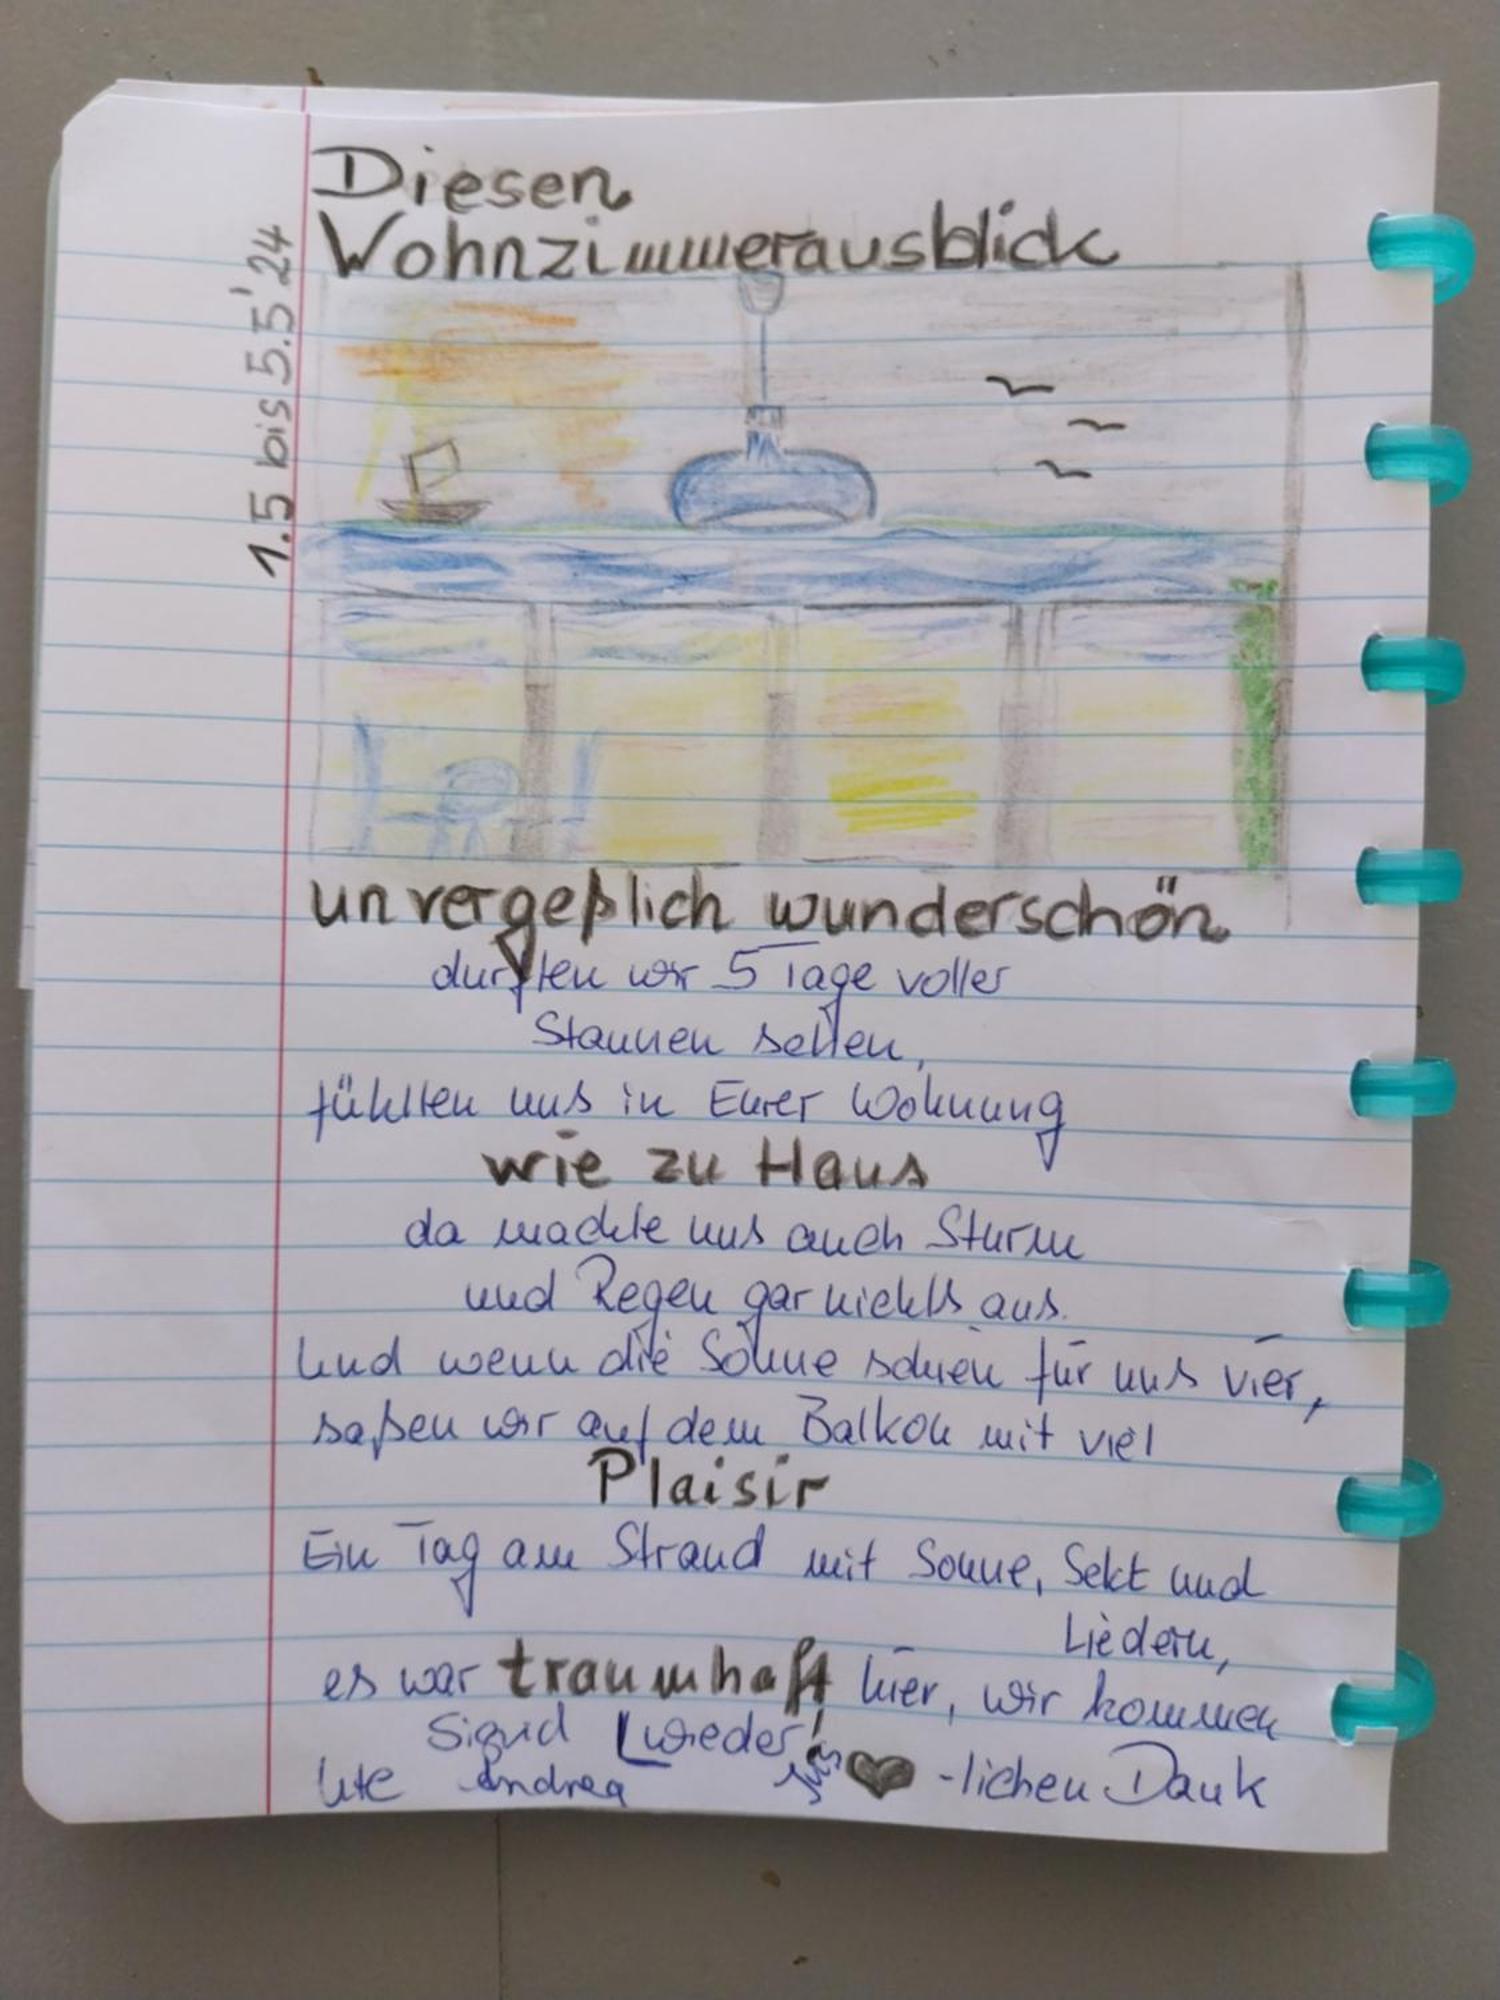 1.5 bis 5.5'24
Diesen
Wohnzimmerausblick
unvergeßlich wunderschön
durften wir 5 Tage voller
Staunen sehen,
fühlten uns in Eurer Wohnung
wie zu Haus
da machte uns auch Sturm
und Regen gar nichts aus.
Und wenn die Sonne schien für uns vier,
saßen wir auf dem Balkon mit viel
Plaisir
Ein Tag am Strand mit Sonne, Sekt und
Liedern,
es war traumhaft hier, wir kommen
wieder!
Sigrid
Ute Andrea
♥-lichen Dank